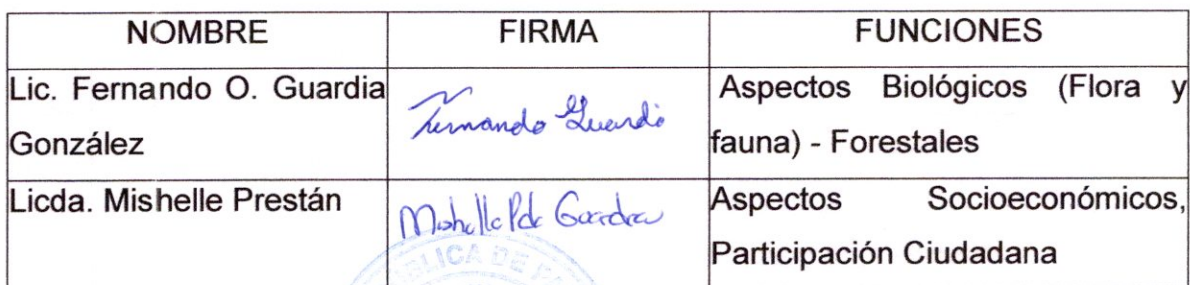 NOMBRE FIRMA FUNCIONES
Lic. Fernando O. Guardia
González
Fernando Guardia
Aspectos Biológicos (Flora y
fauna) - Forestales
Licda. Mishelle Prestán
Mishelle P de Guardia
Aspectos Socioeconómicos,
Participación Ciudadana